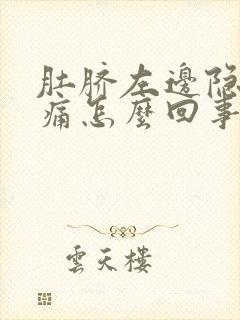 肚脐左邊隐
痛怎麼回事
雲天樓